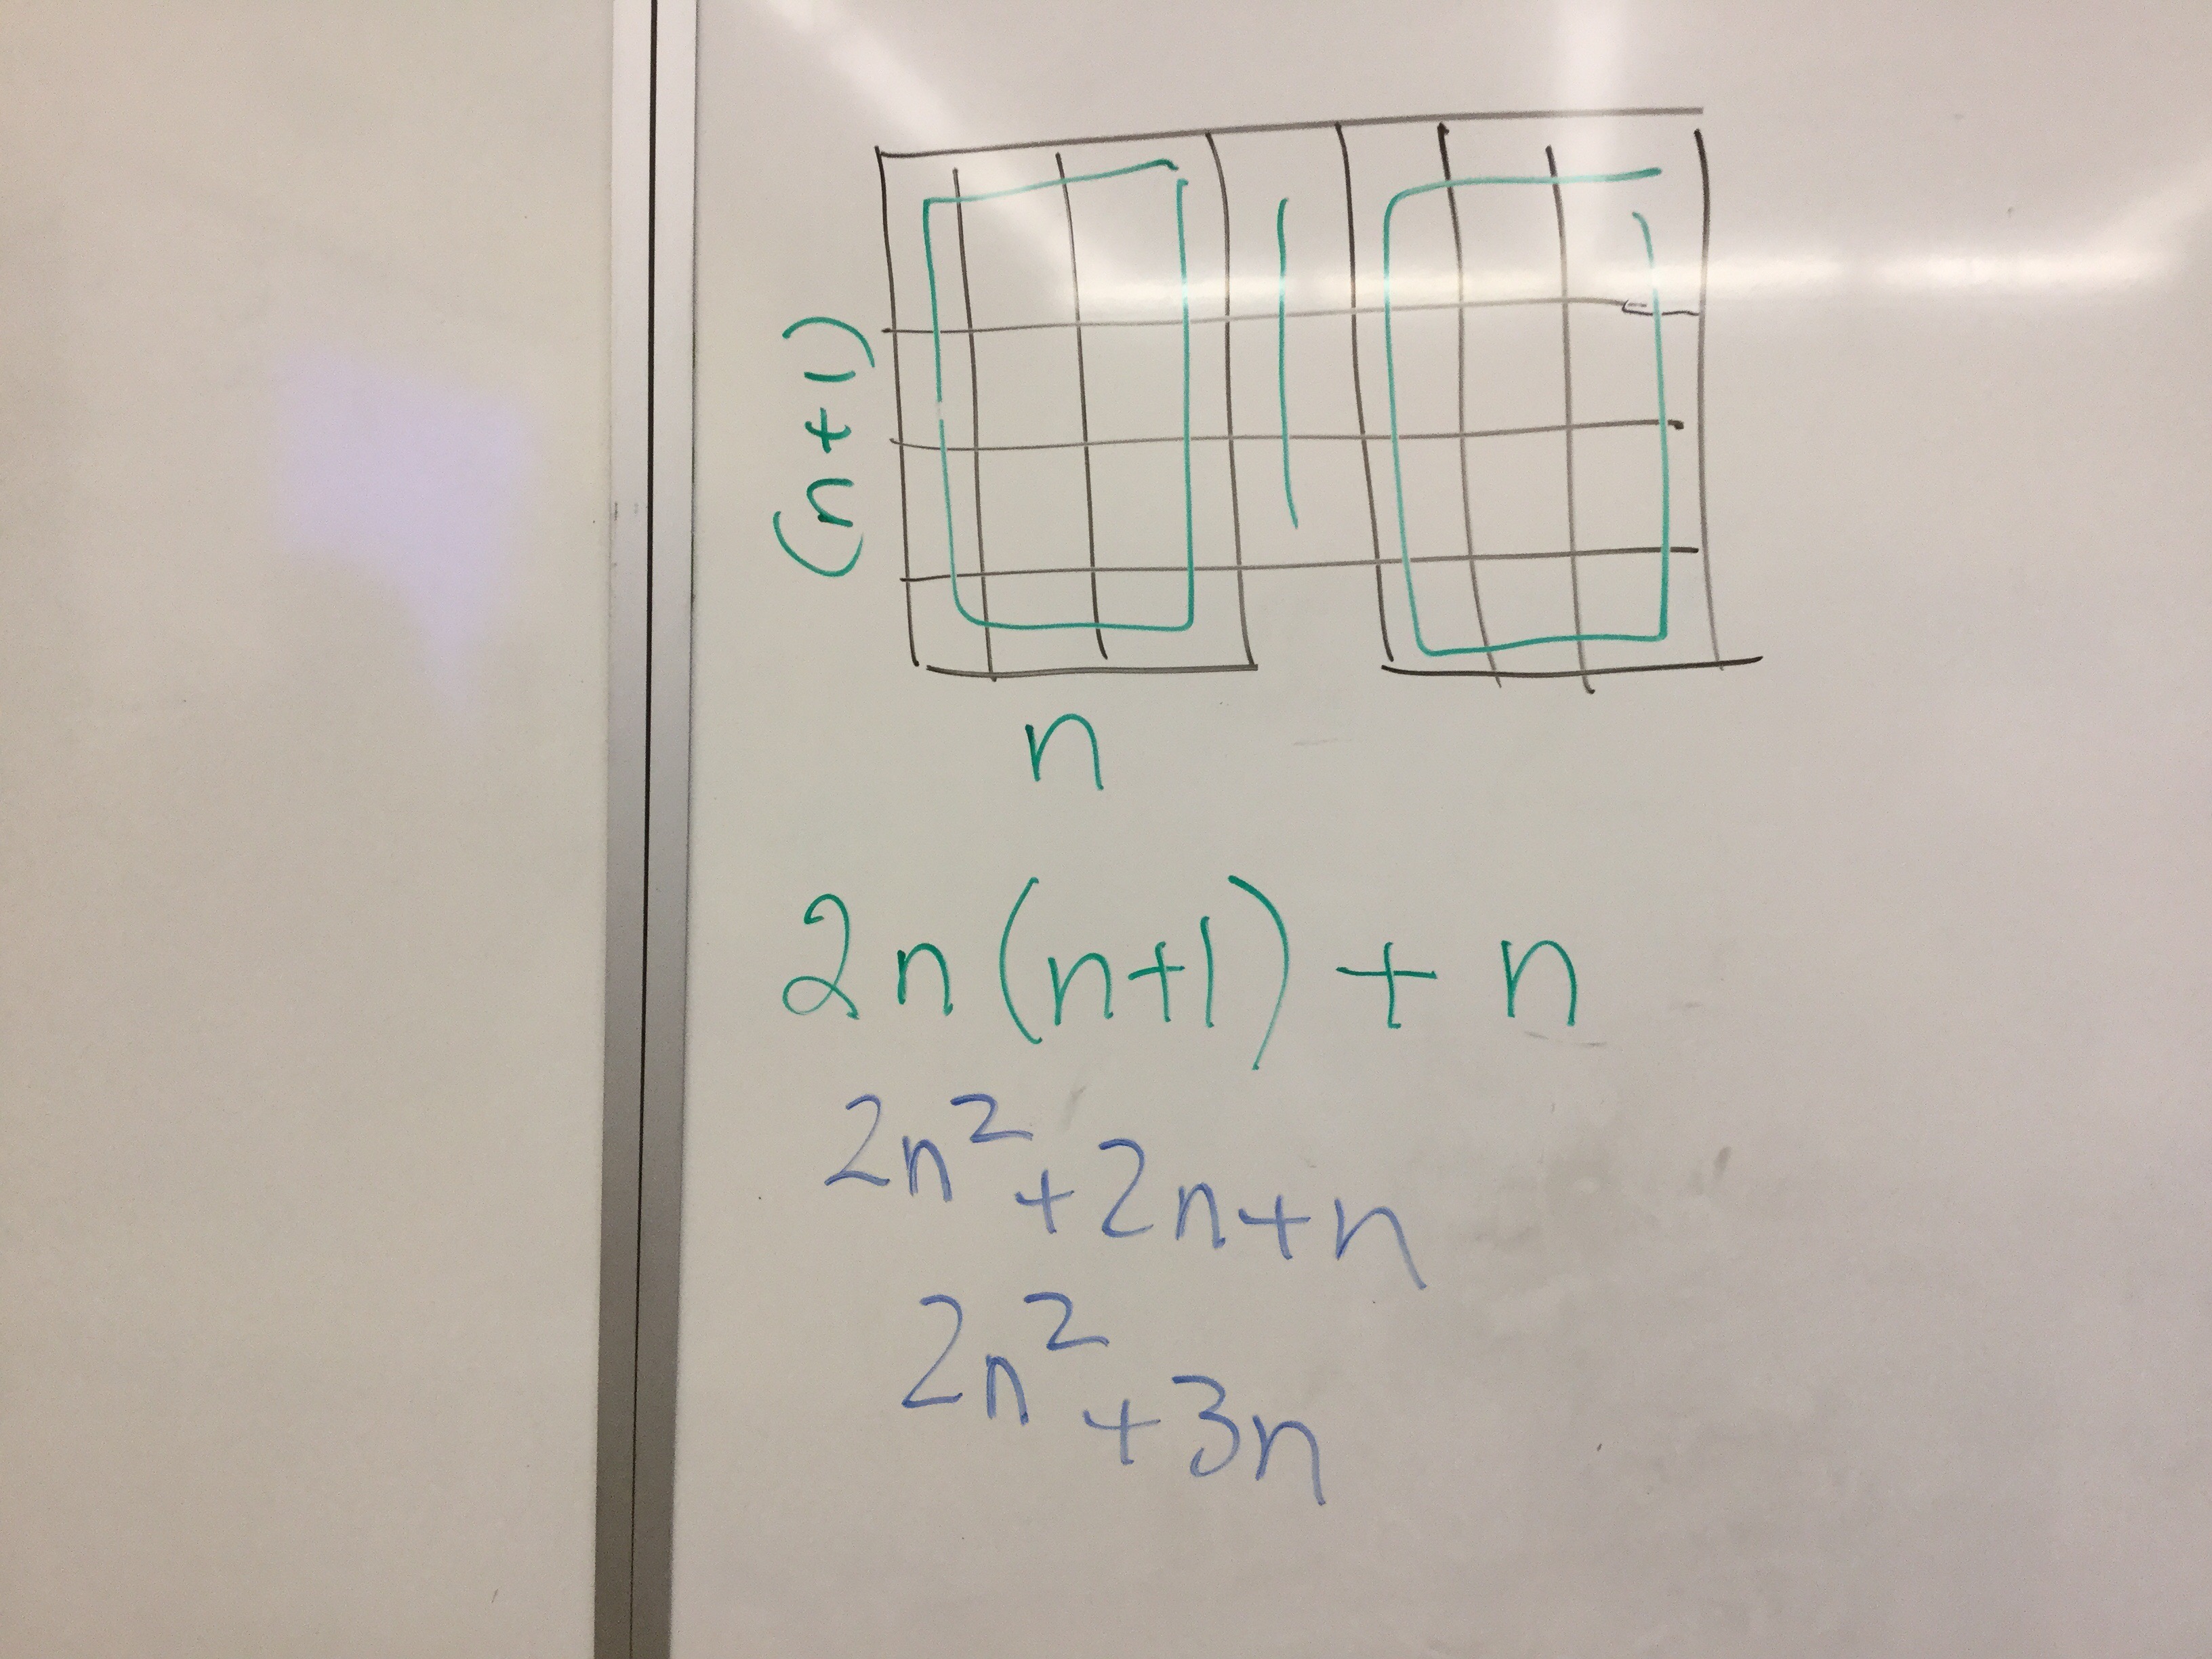 (n+1)
n
2n(n+1) + n
2n² + 2n + n
2n² + 3n